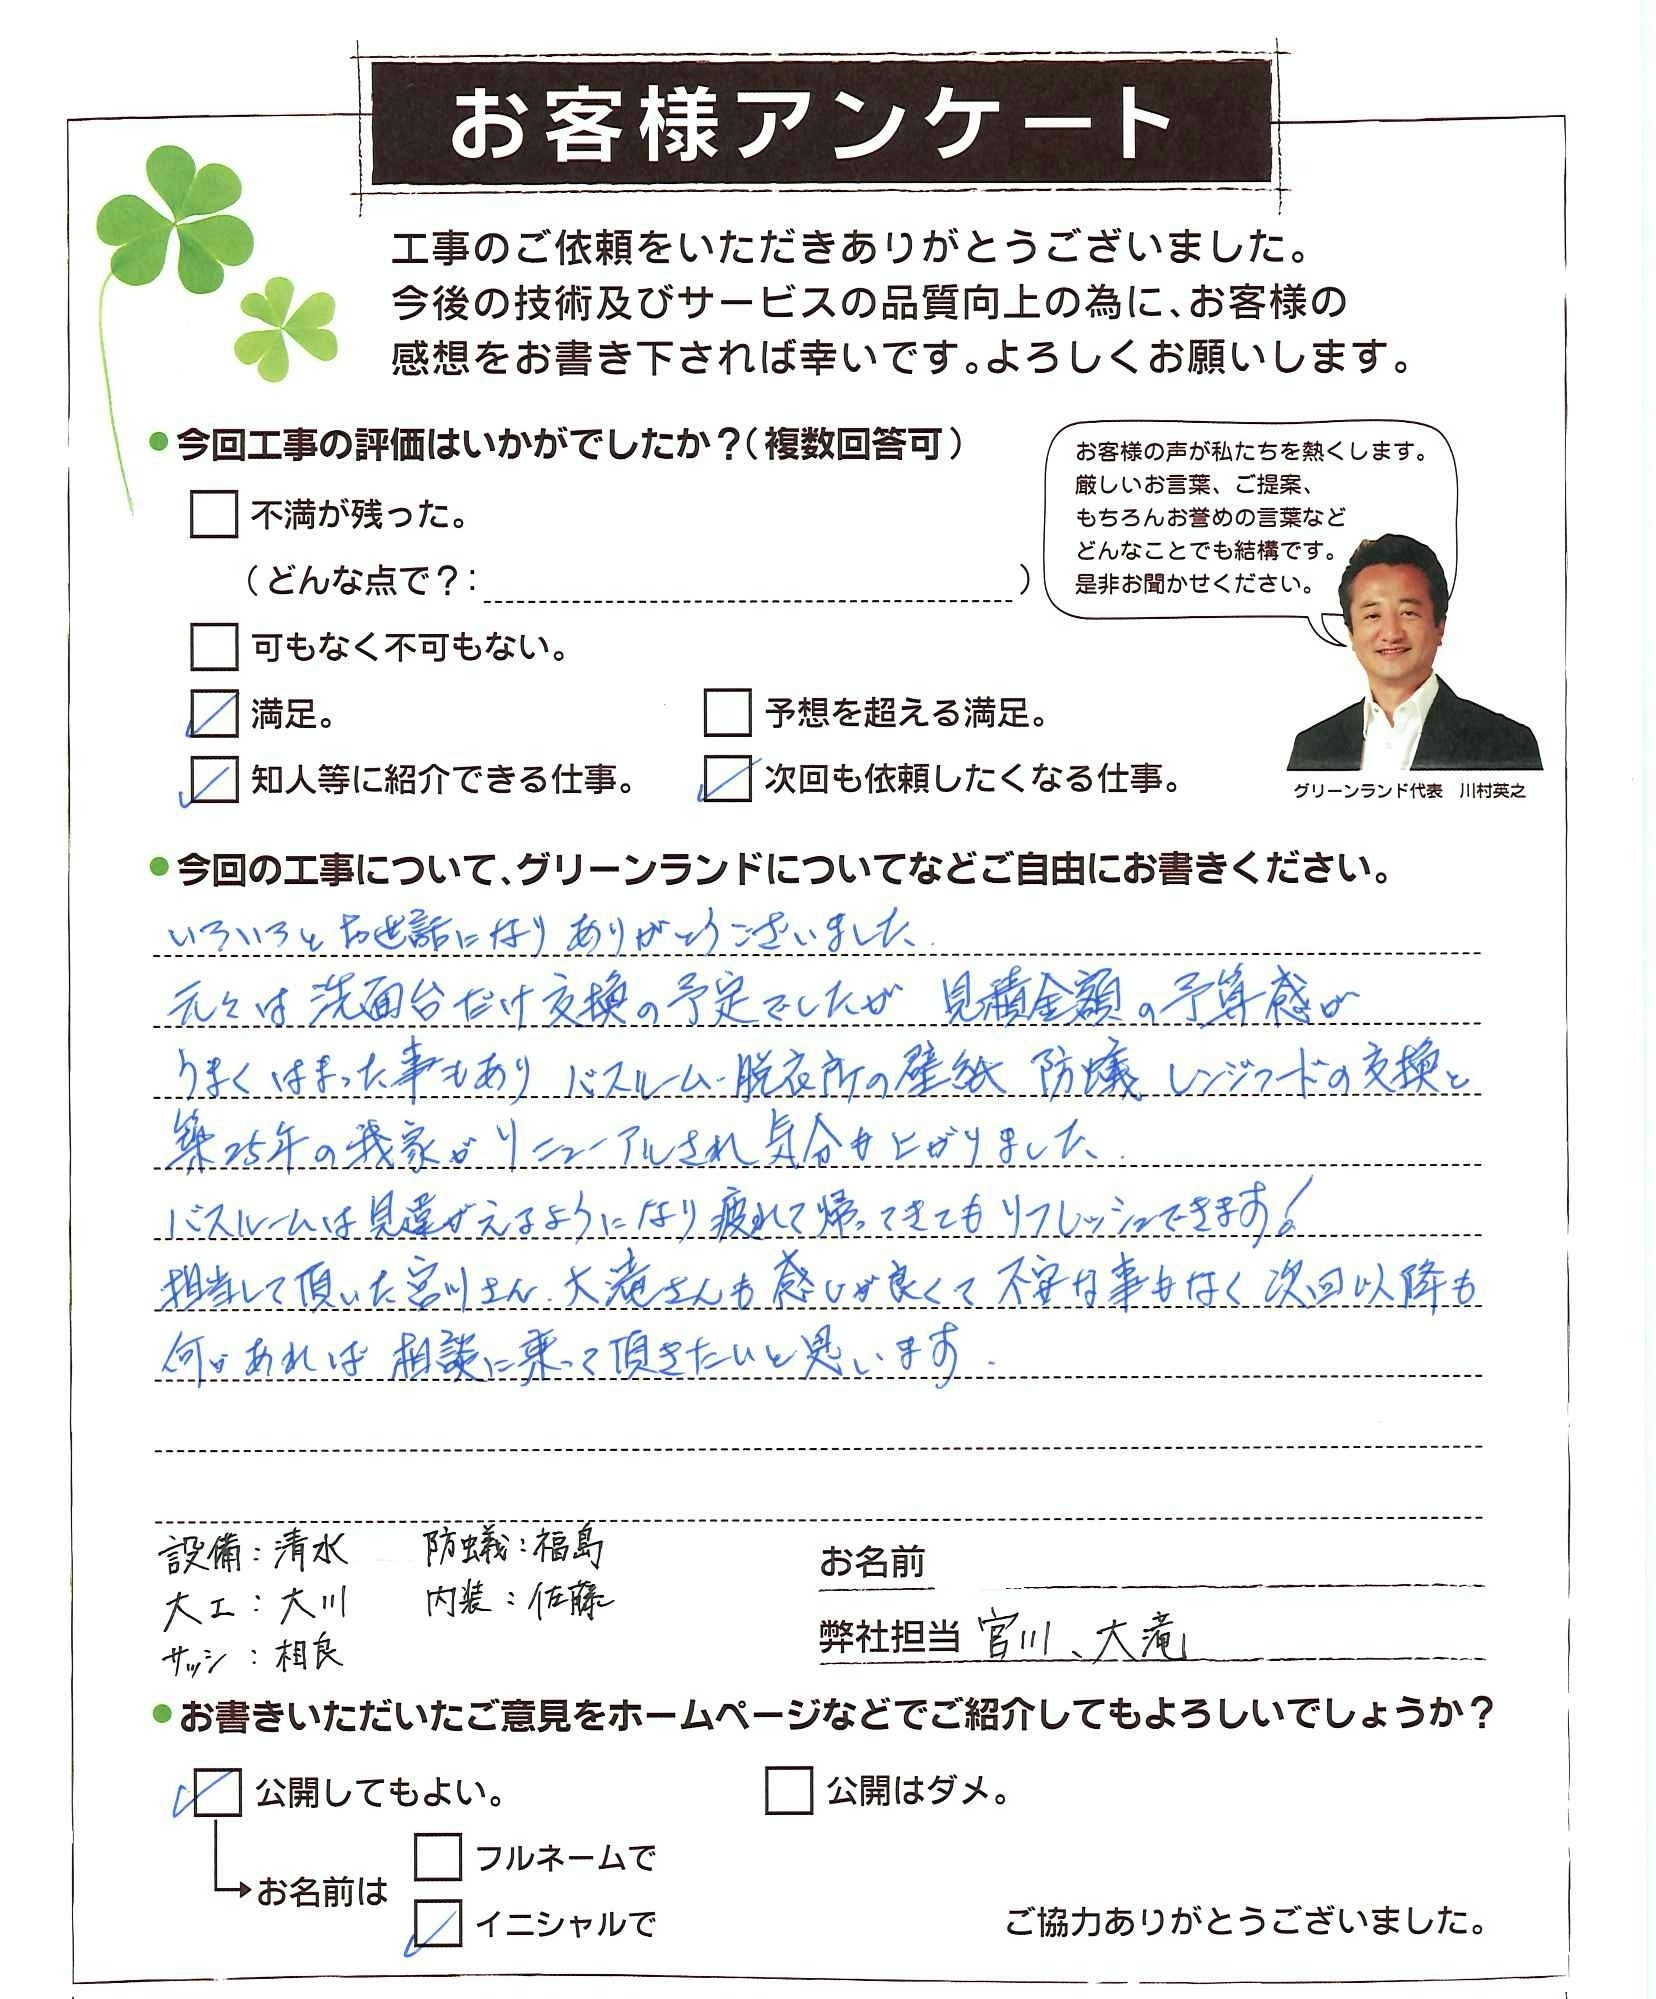 お客様アンケート
工事のご依頼をいただきありがとうございました。
今後の技術及びサービスの品質向上の為に、お客様の
感想をお書き下されば幸いです。よろしくお願いします。
●今回工事の評価はいかがでしたか？（複数回答可）
不満が残った。
（どんな点で？： ）
可もなく不可もない。
満足。 予想を超える満足。
知人等に紹介できる仕事。 次回も依頼したくなる仕事。
お客様の声が私たちを熱くします。
厳しいお言葉、ご提案、
もちろんお誉めの言葉など
どんなことでも結構です。
是非お聞かせください。
グリーンランド代表 川村英之
●今回の工事について、グリーンランドについてなどご自由にお書きください。
いろいろとお世話になりありがとうございました.
元々は洗面台だけ交換の予定でしたが 見積金額の予算感が
うまくはまった事もあり バスルーム・脱衣所の壁紙 防蟻 レンジフードの交換と
築25年の我家がリニューアルされ気分も上がりました.
バスルームは見違がえるようになり疲れて帰ってきてもリフレッシュできます!
担当して頂いた宮川さん.大滝さんも感じが良くて不安な事もなく次回以降も
何かあれば相談に乗って頂きたいと思います.
設備：清水 防蟻：福島
大工：大川 内装：佐藤
サッシ：相良
お名前
弊社担当 宮川、大滝
●お書きいただいたご意見をホームページなどでご紹介してもよろしいでしょうか？
公開してもよい。 公開はダメ。
お名前は
フルネームで
イニシャルで
ご協力ありがとうございました。